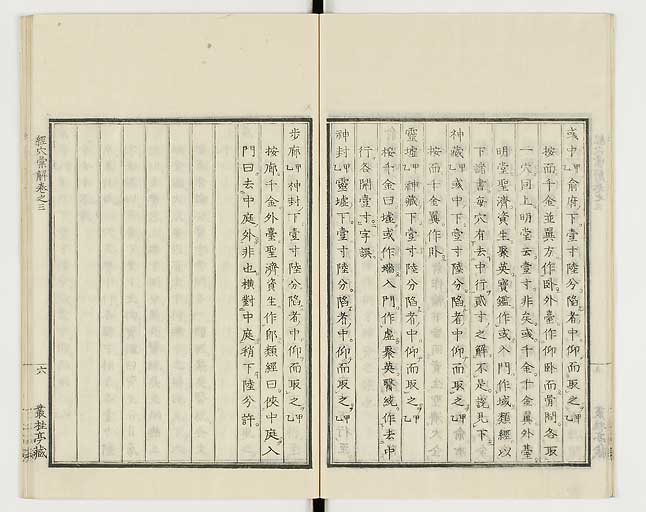 彧中甲乙俞府下壹寸陸分陷者中仰而取之甲乙
按而千金並翼方作卧外臺作仰卧而骨間各取
一穴同上明堂云壹寸非矣或千金千金翼外臺
明堂聖濟資生聚英寶鑑作或入門作域類經以
下諸書每穴有去中行貳寸之解不是説見下
神藏甲乙或中下壹寸陸分陷者中仰而取之甲乙
按而千金翼作卧
靈墟甲乙神藏下壹寸陸分陷者中仰而取之甲乙
按千金曰墟或作入門作虚聚英醫統作去中
行各開壹寸字誤
神封甲乙靈墟下壹寸陸分陷者中仰而取之甲乙
步廊甲乙神封下壹寸陸分陷者中仰而取之甲乙
按廊千金外臺聖濟資生作郎類經曰俠中庭入
門曰去中庭外非也橫對中庭稍下陸分許
經穴彙解卷之三
六
叢桂亭藏